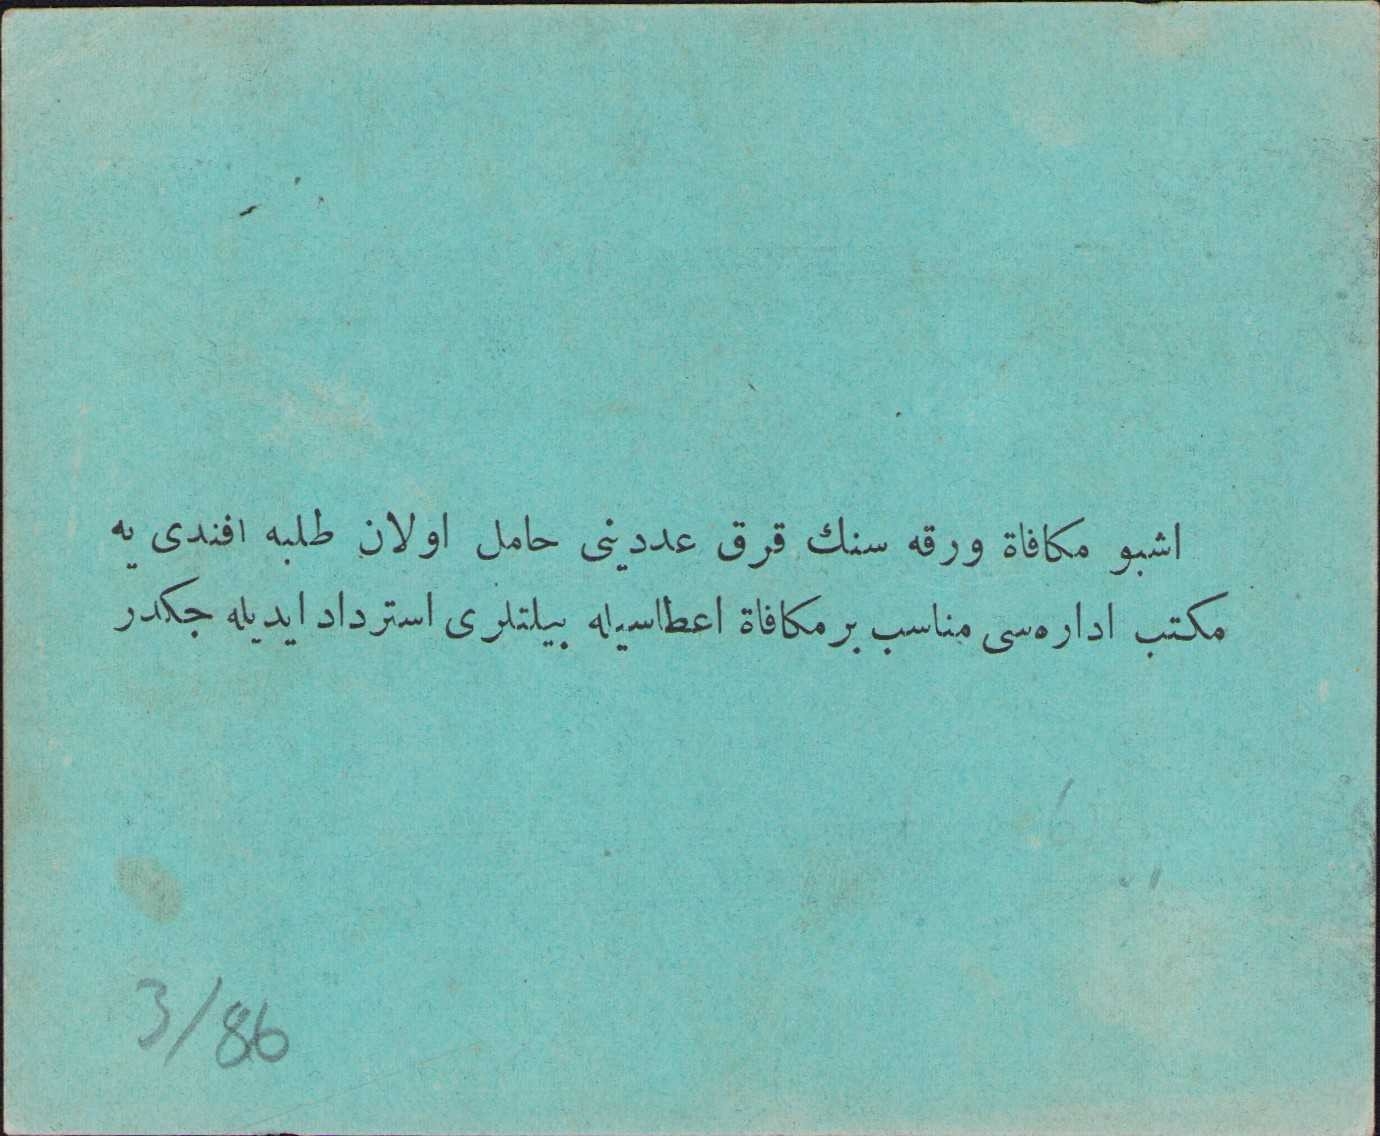 اشبو مكافاة ورقه سنك قرق عددينى حامل اولان طلبه افندى يه
مكتب اداره‌سى مناسب بر مكافاة اعطاسيله بيلتلرى استرداد ايديله جكدر
3/86